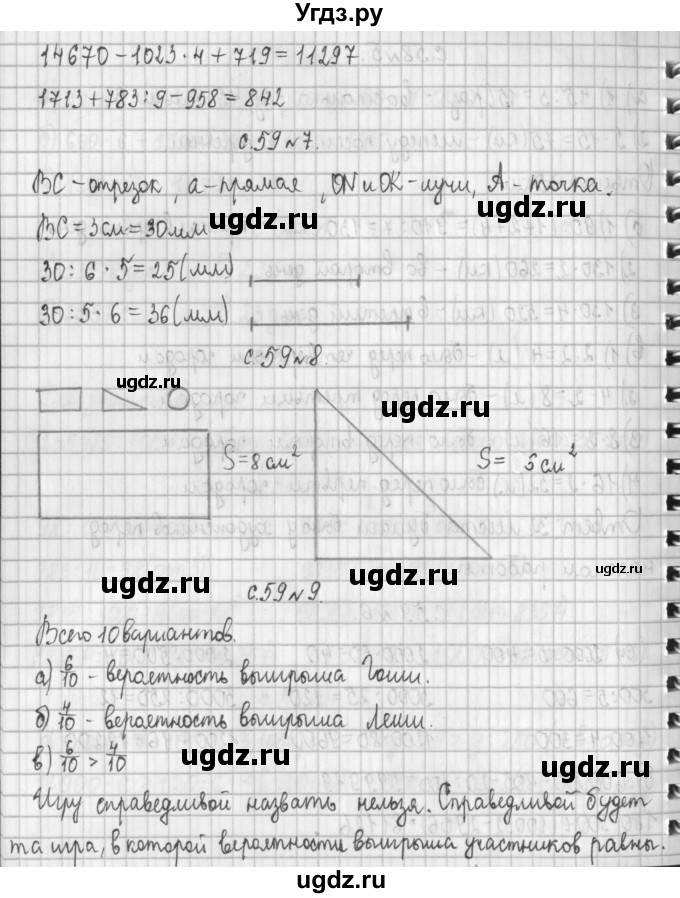 Угдз.ру
14670-1023·4+719=11297
1713+783:9-958=842
с.59 №7.
ВС-отрезок, а-прямая, ОN и ОК-лучи, А-точка.
ugdz.ru
ugdz.ru
ВС=3см=30мм
30:6·5=25(мм)
30:5·6=36(мм)
с.59 №8.
ugdz.ru
ugdz.ru
S=8см²
S= 6см²
ugdz.ru
ugdz.ru
с.59 №9.
Всего 10 вариантов.
а) 6/10 - вероятность выигрыша Гоши.
б) 4/10 - вероятность выигрыша Леши.
в) 6/10 > 4/10
ugdz.ru
ugdz.ru
Игру справедливой назвать нельзя. Справедливой будет
та игра, в которой вероятности выигрыша участников равны.
ugdz.ru